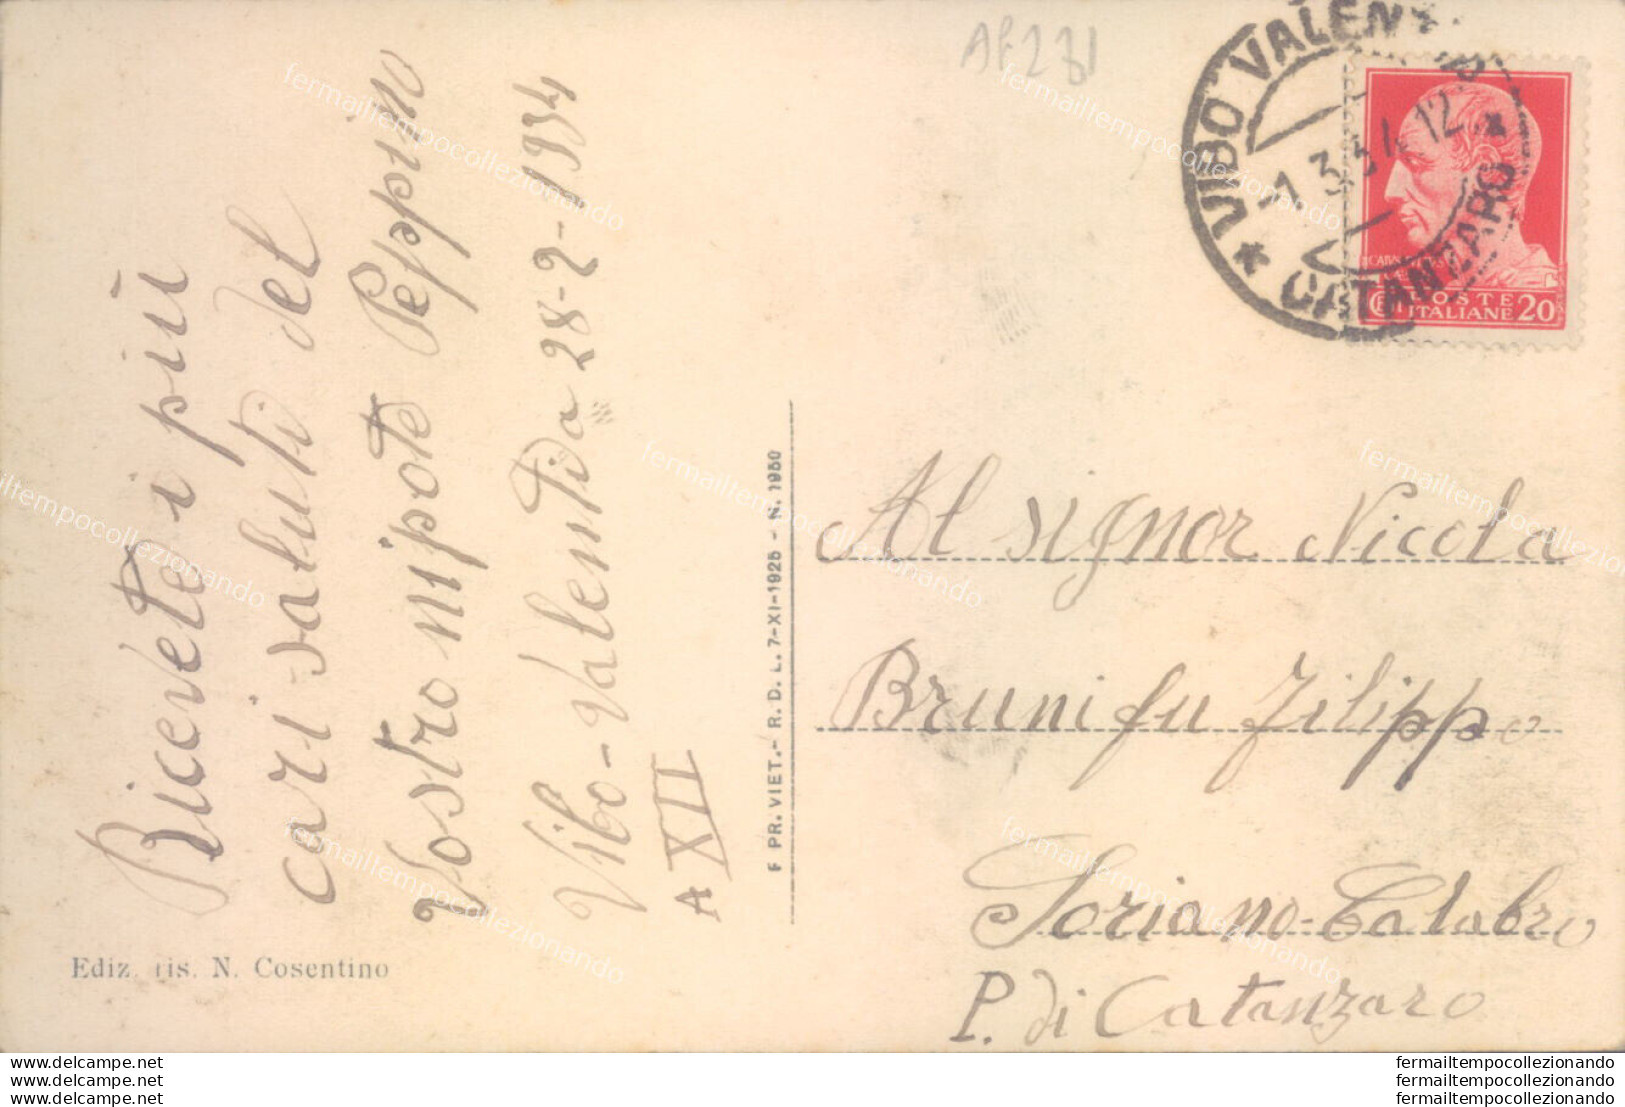 Ricevete i più
cari saluti del
Vostro nipote Peppino
Vibo-Valentia 28-2-1934
A XII
Ediz. ris. N. Cosentino
F PR. VIET.- R. D. L. 7-XI-1925 - N. 1950
AF231
* VIBO VALENTIA *
CATANZARO
1.3.34.12
POSTE
ITALIANE 20
Al signor Nicola
Bruni fu Filippo
Soriano-Calabro
P. di Catanzaro
fermailtempocollezionando
fermailtempocollezionando
fermailtempocollezionando
fermailtempocollezionando
fermailtempocollezionando
fermailtempocollezionando
www.delcampe.net
www.delcampe.net
www.delcampe.net
fermailtempocollezionando
fermailtempocollezionando
fermailtempocollezionando